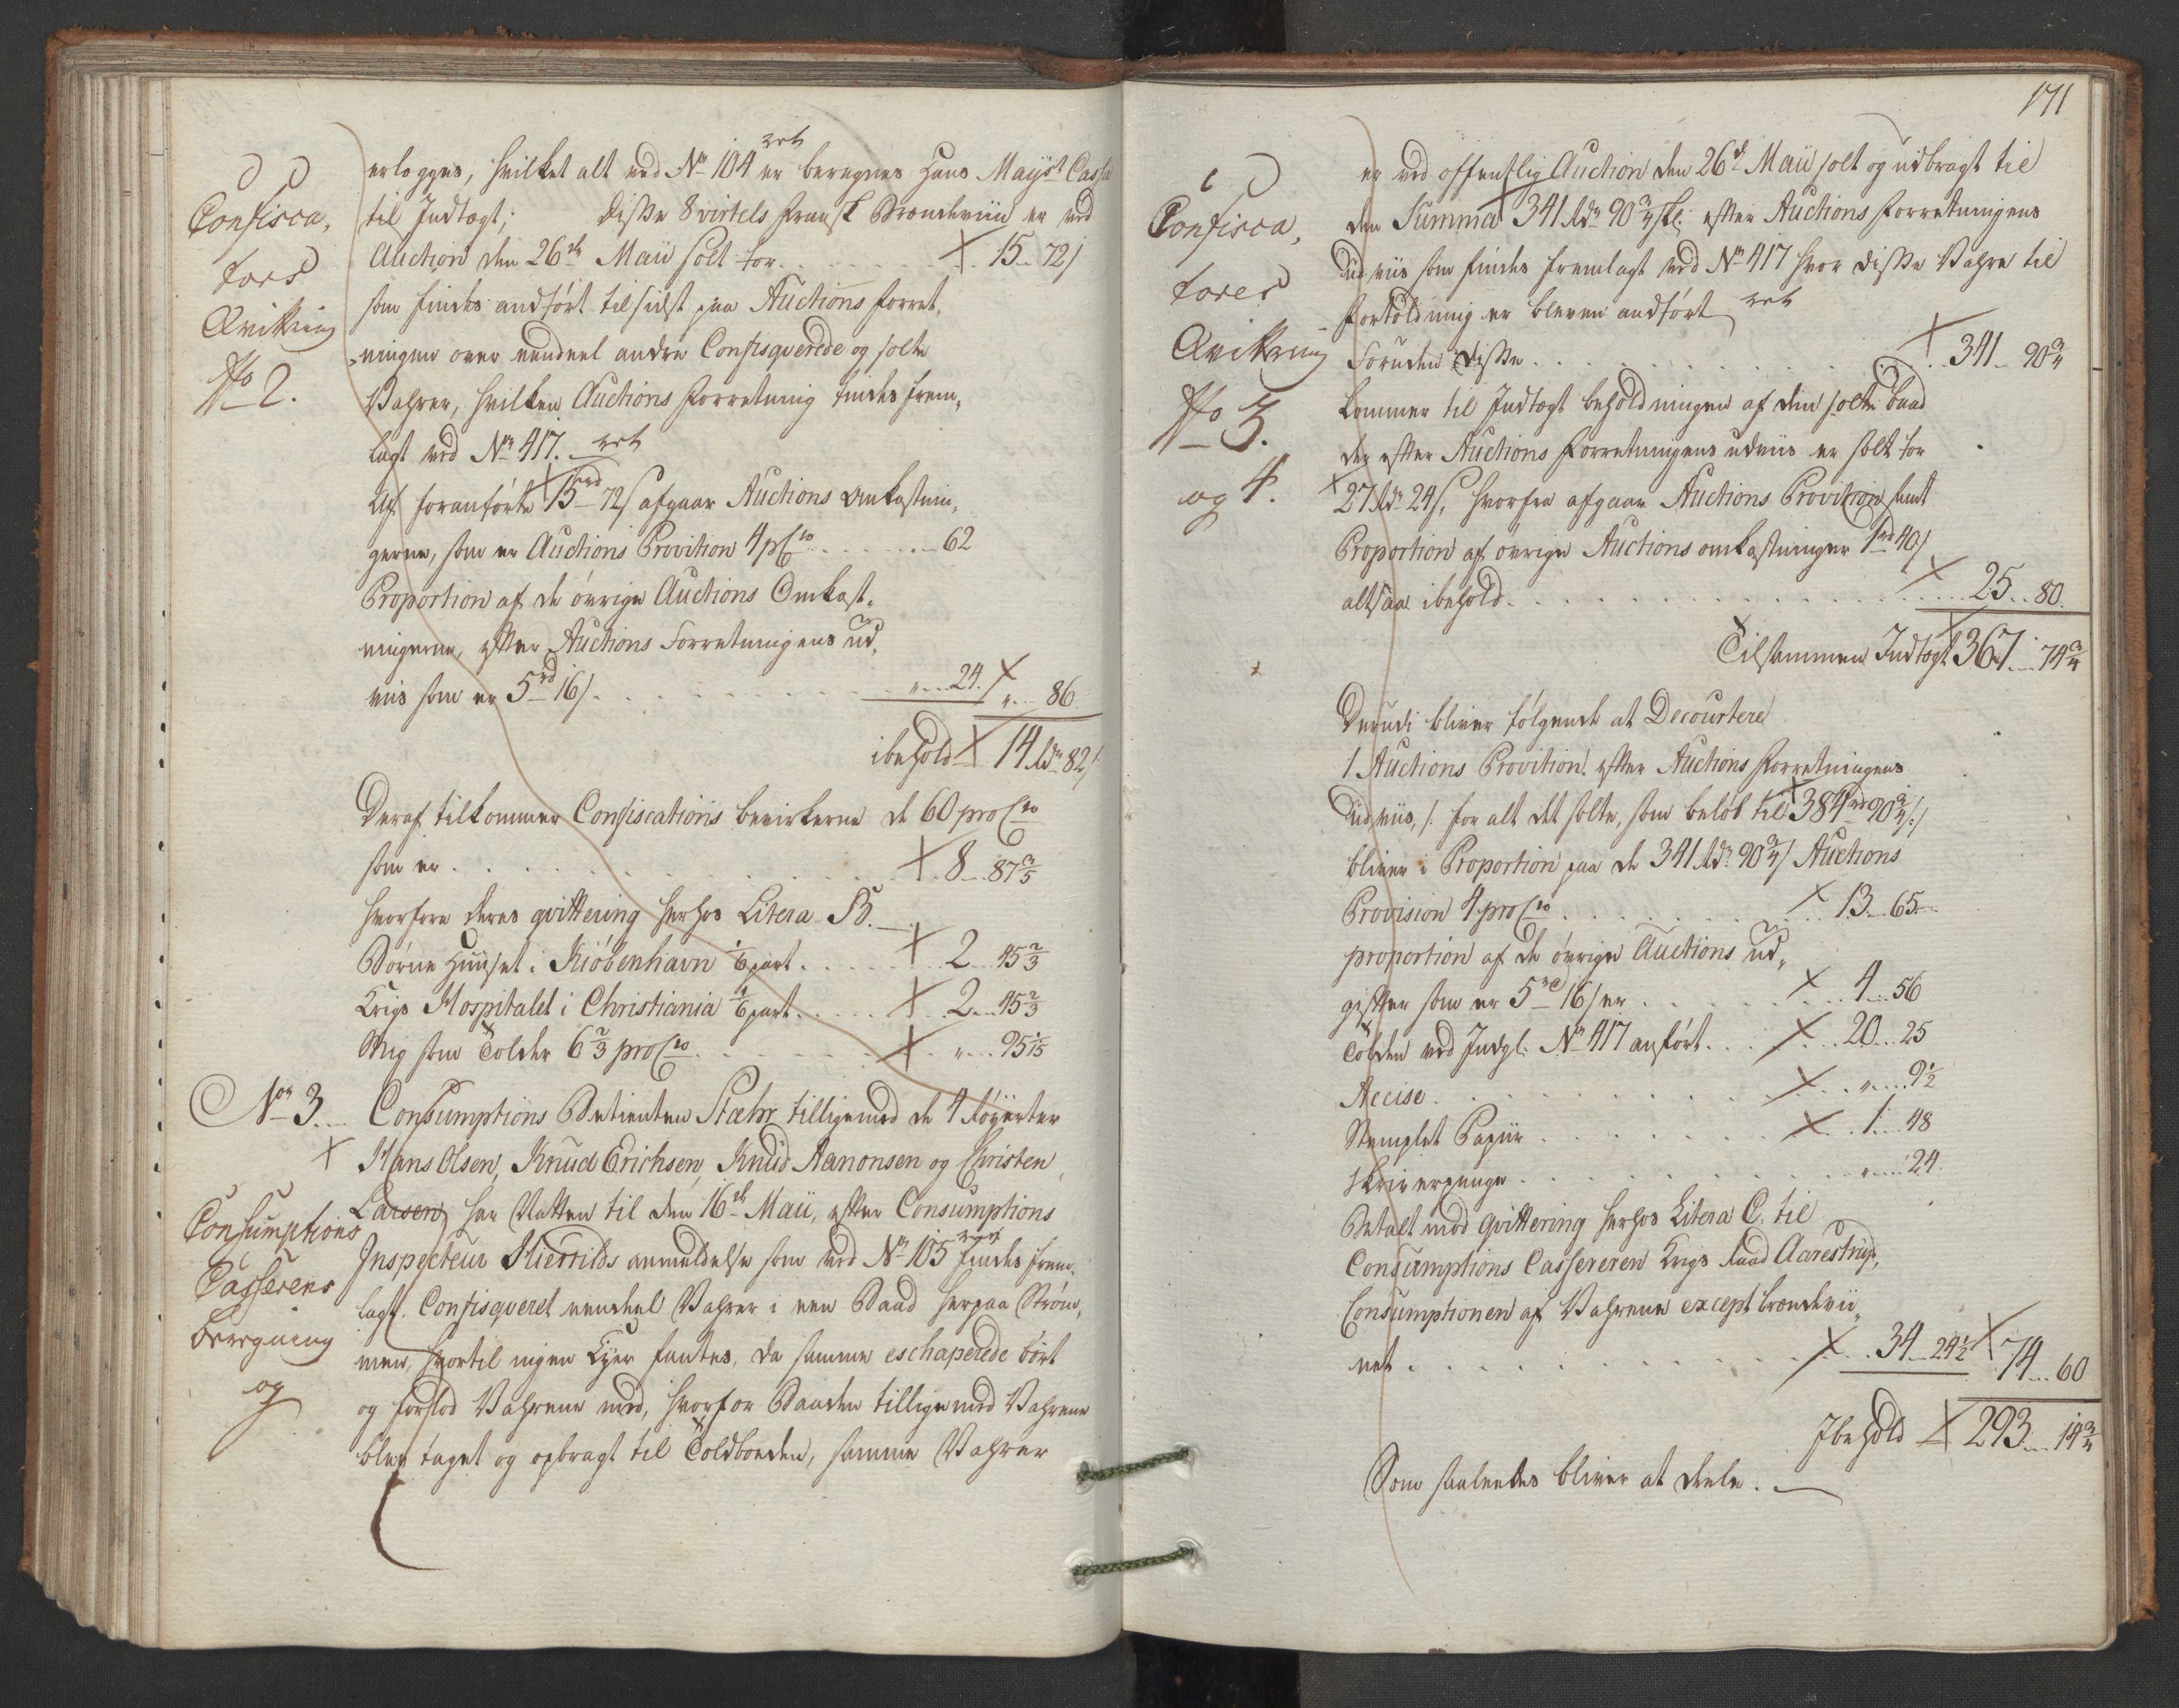 erlegges, hvilket alt ved No 104 er beregnet Hans Mayst Cassa
ret
til Indtægt; disse 8 virtels Fransk Brændeviin er ved
Auction den 26de Maii solt for . . . 15 .. 72 s
som findes andført tilsidst paa Auctions Forret,
ningen over eendeel andre Confisqverede og solte
Vahrer, hvilken Auctions Forretning findes frem,
lagt ved No 417. ret
Af foranførte 15 rd 72 s afgaar Auctions Omkostnin,
gerne, som er Auctions Provition 4 p Cto . . . 62
Proportion af de øvrige Auctions Omkost,
ningerne, efter Auctions Forretningens ud,
viis som er 5 rd 16 s . . . " .. 24. " .. 86
ibehold 14 rdr 82 s
Deraf tilkommer Confiscations bevirkerne de 60 pro Cto
som er . . . 8 .. 87 3/5
hvorfore deres qvittering herhos Litera B.
Børne Huuset i Kiøbenhavn 1/6 part . . . 2 .. 45 2/3
Krigs Hospitalet i Christiania 1/6 part . . . 2 .. 45 2/3
Mig som Tolder 6 2/3 pro Cto . . . " .. 95 1/15
Confisca,
tors
Qvittering
No 2.
No 3. Consumptions Betienten Stæhr tilligemed de 4
Hans Olsen, Knud Erichsen, Knud Aanonsen og Christen
Larsen, har Natten til den 16de Maii, efter Consumptions
Inspecteur Hierrilds anmeldelse som ved No 105 findes frem,
lagt. Confisqveret eendeel Vahrer i een Baad herpaa Strøm,
men, hvortil ingen Eyer fantes, da samme eschaperede bort
og forlod Vahrene med, hvorfor Baaden tilligemed Vahrene
blev taget og opbragt til Toldboeden, samme Vahrer
Consumptions
Casserens
beregning
og
171
er ved offentlig Auction den 26de Maii solt og udbragt til
den Summa 341 rdr 90 3/4 sk: efter Auctions Forretningens
Udviis som findes fremlagt ved No 417 hvor disse Vahre til
Fortoldning er bleven andført ret
Foruden disse . . . 341 .. 90 3/4
kommer til Indtægt beholdningen af den solte baad
der efter Auctions Forretningens udviis er solt for
27 rdr 24 s, hvorfra afgaar Auctions Provition samt
Proportion af øvrige Auctions omkostninger 1 rd 40 s
altsaa ibehold . . . 25 .. 80.
Tilsammen Indtægt 367 .. 74 3/4
Confisca,
torer
Qvittering
No 3.
og 4.
Derudi bliver følgende at Decourtere
1 Auctions Provition efter Auctions Forretningens
Udviis, /: for alt det solte, som beløb til 384 rd 90 3/4 s :/
bliver i Proportion paa de 341 rdr 90 3/4 s Auctions
Provision 4 pro Cto . . . 13 .. 65
proportion af de øvrige Auctions Ud,
gifter som er 5 rd 16 s er . . . 4 .. 56
Tolden ved Indgl. No 417 anført . . . 20 .. 25
Accise . . . " .. 9 1/2
Stemplet Papiir . . . 1 .. 48
Skriverpenge . . . " .. 24.
Betalt mod qvittering herhos Litera C. til
Consumptions Cassereren Krigs Raad Aarestrup,
Consumptionen af Vahrene except brændevii,
net . . . 34 .. 24 1/2 74 .. 60
Ibehold 293 .. 14 3/4
Som saaledes bliver at deele.